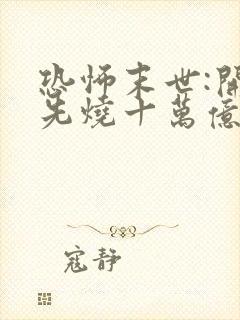 恐怖末世:開
先燒十萬億
寇靜